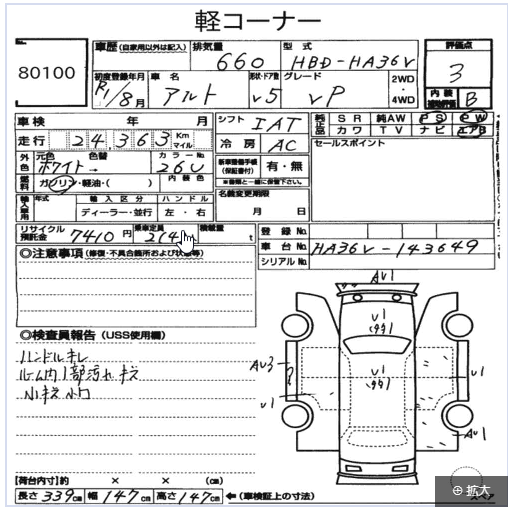 軽コーナー
80100
車歴 (自家用以外は記入) 排気量 660 型式 HBD-HA36V
評価点 3
初度登録年月 R1/8月 車名 アルト 形状・ドア数 V5 グレード VP 2WD・4WD
内装補助評価 B
車検 年 月 シフト IAT
純正品 SR 純AW PS PW
カワ TV ナビ エアB
走行 24,363 Km マイル 冷房 AC
セールスポイント
外色 元色 ホワイト→ 色替 カラーNo. 26U
新車整備手帳(保証書付) 有・無
※書類と一緒に保管下さい。
燃料 ガソリン・軽油・( ) 内装色
名義変更期限 月 日
輸入車用 年式 輸入区分 ディーラー・並行 ハンドル 左・右
リサイクル預託金 7410円 乗車定員 積載量 t
登録No.
車台No. HA36V-143649
シリアルNo.
◎注意事項 (修復・不具合箇所および状態等)
◎検査員報告 (USS使用欄)
ハンドルキレ
ルーム内1部汚れキズ
小キズ小凹
AU1
U1
U1
AU3
U1
U1
AU1
【荷台内寸】約 × × (cm)
長さ 339cm 幅 147cm 高さ 147cm ←(車検証上の寸法)
拡大
スペア